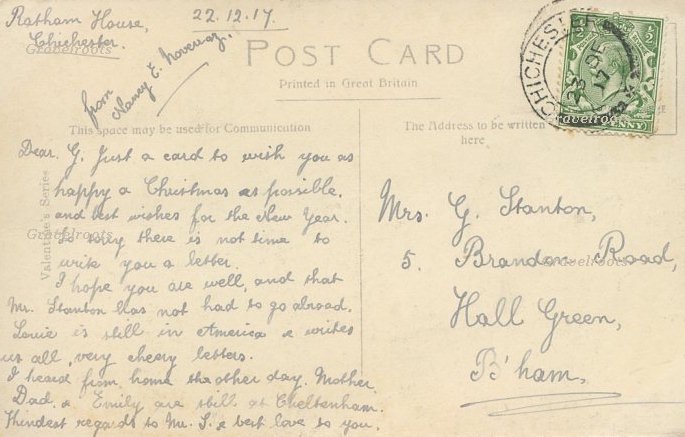 Ratham House,
Chichester.
22.12.17.
from
Nancy E.
POST CARD
Printed in Great Britain
This space may be used for Communication
The Address to be written
here
Valentine's Series
Dear. G. Just a card to wish you as
happy a Christmas as possible.
and best wishes for the New Year.
So sorry there is not time to
write you a letter.
I hope you are well, and that
Mr. Stanton has not had to go abroad.
Louie is still in America & writes
us all, very cheery letters.
I heard from home the other day. Mother
Dad. & Emily are still at Cheltenham.
Kindest regards to Mr. S. & best love to you.
Mrs. G. Stanton,
5. Brandon Road,
Hall Green,
B'ham.
CHICHESTER
23 DE
17
PENNY
Gravelroots
Gravelroots
Gravelroots
ravelroo